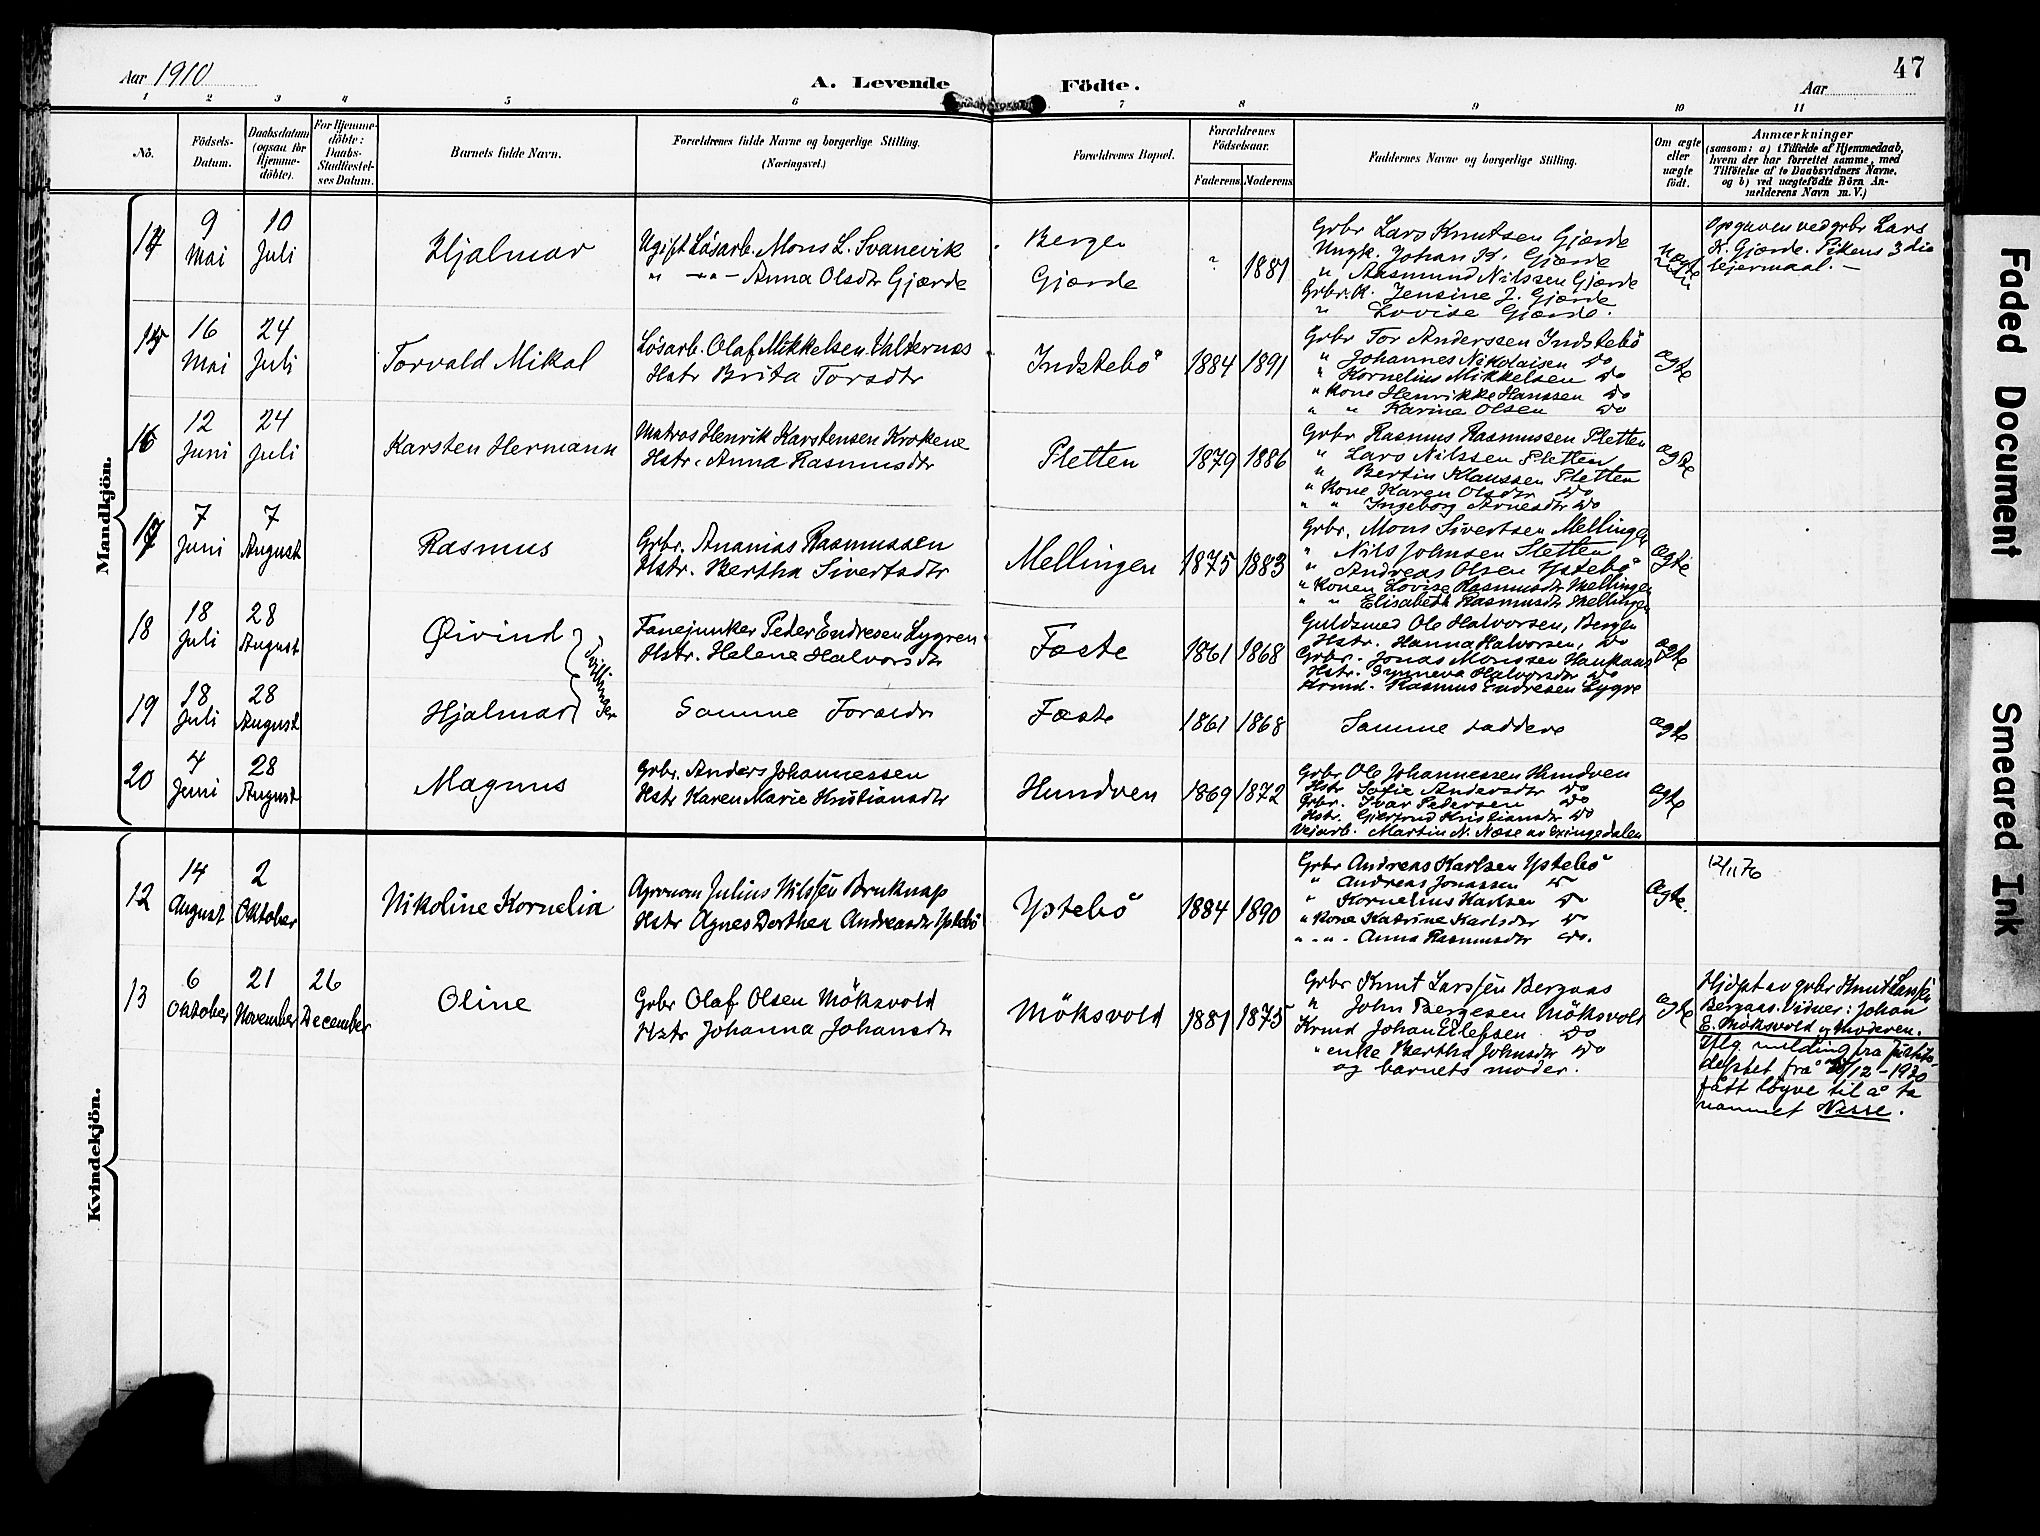 Aar 1910
A. Levende
Födte.
Aar
47
1 2 3 4 5 6 7 8 9 10 11
No.
Födsels-
Datum.
Daabsdatum
(ogsaa for
Hjemme-
döbte).
For Hjemme-
döbte:
Daabs-
Stadfæstel-
ses Datum.
Barnets fulde Navn.
Forældrenes fulde Navne og borgerlige Stilling.
(Næringsvei.)
Forældrenes Bopæl.
Forældrenes
Födselsaar.
Faderens. Moderens.
Faddernes Navne og borgerlige Stilling.
Om ægte
eller
uægte
født.
Anmærkninger
(saasom: a) i Tilfælde af Hjemmedaab,
hvem der har forrettet samme, med
Tilföielse af to Daabsvidners Navne,
og b) ved uægtefödte Börn An-
melderens Navn m. V.)
Mandkjön.
14
9
Mai
10
Juli
Hjalmar
Ugift Løsarb. Mons L. Svanevik
" -"- Anna Olsdtr Gjærde
Bergen
Gjærde
?
1881
Grbr Lars Knutsen Gjærde
Ungk. Johan K. Gjærde
" Aasmund Nilssen Gjærde
Grbr.K. Jensine J. Gjærde
" Lovise Gjærde.
Uægte
Opgaven ved grbr Lars
K. Gjærde. Pikens 3die
leiermaal.
15
16
Mai
24
Juli
Torvald Mikal
Løsarb. Olaf Mikkelsen Valdernes
Hstr Brita Torsdtr
Indstebö
1884
1891
Grbr Tor Anderssen Indstebö
" Johannes Nikolaisen do
" Kornelius Mikkelsen do
" Kone Henrikke Hanssen do
" " Karine Olsen do
ægte
16
12
Juni
24
Juli
Karsten Hermann
Matros Henrik Karstensen Krokene
Hstr. Anna Rasmusdtr
Sletten
1879
1886
Grbr Rasmus Rasmussen Sletten
" Lars Nilssen Sletten
" Bertin Klaussen Sletten
" Kone Karen Olsdtr do
" " Ingeborg Arnesdtr do
ægte
17
7
Juni
7
August
Rasmus
Grbr. Ananias Rasmussen
Hstr. Bertha Sivertsdtr
Mellingen
1875
1883
Grbr. Mons Sivertsen Mellingen
" Nils Johnsen Sletten
" Andreas Olsen Ystebö
" Konen Lovise Rasmusdtr Mellingen
" " Elisabeth Rasmusdtr Mellingen
ægte
18
18
Juli
28
August
Øivind
Tvillinger
Fanejunker Peder Endresen Lygren
Hstr. Helene Halvorsdtr
Fæste
1861
1868
Guldsmed Ole Halvorsen, Bergen
Hstr. Hanna Halvorsen, do
Grbr. Jonas Monssen Haukaas
Hstr. Synneva Halvorsdtr do
Krmd. Rasmus Endresen Lygre
ægte
19
18
Juli
28
August
Hjalmar
Samme Forældr
Fæste
1861
1868
Samme Faddere
ægte
20
4
Juni
28
August
Magnus
Grbr. Anders Johannessen
Hstr Karen Marie Kristiansdtr
Hundven
1869
1872
Grbr Ole Johannessen Hundven
Hstr Sofie Andersdtr do
Grbr. Ivar Pedersen do
Hstr. Gjertrud Kristiansdtr do
Veiarb. Martin N. Næse av Exingedalen
ægte
Kvindekjön.
12
14
August
2
Oktober
Nikoline Kornelia
Agronom Julius Nilssen Bruknap
Hstr Agnes Dorthea Andreasdtr Ystebö
Ystebö
1884
1890
Grbr Andreas Karlsen Ystebö
" Andreas Jonassen do
" Kornelius Karlsen do
" Kone Katrine Karlsdtr do
" - " - Anna Rasmusdtr do.
Ægte.
12/11 76
13
6
Oktober
21
November
26
December
Oline
Grbr Olaf Olsen Möksvold
Hstr Johanna Johansdtr
Möksvold
1881
1875
Grbr Knut Larssen Bergaas
" John Bergesen Möksvold
Krmd Johan Eilefsen do
" enke Bertha Johnsdtr do
og barnets moder.
ægte
Hjdpt av grbr Knut Larssen
Bergaas. Vidner: Johan
E. Möksvold og Moderen.
Iflg melding fra justits-
deptet frå /12-1930
fått löyve til å ta
namnet Nesse.
Faded Document
Smeared Ink